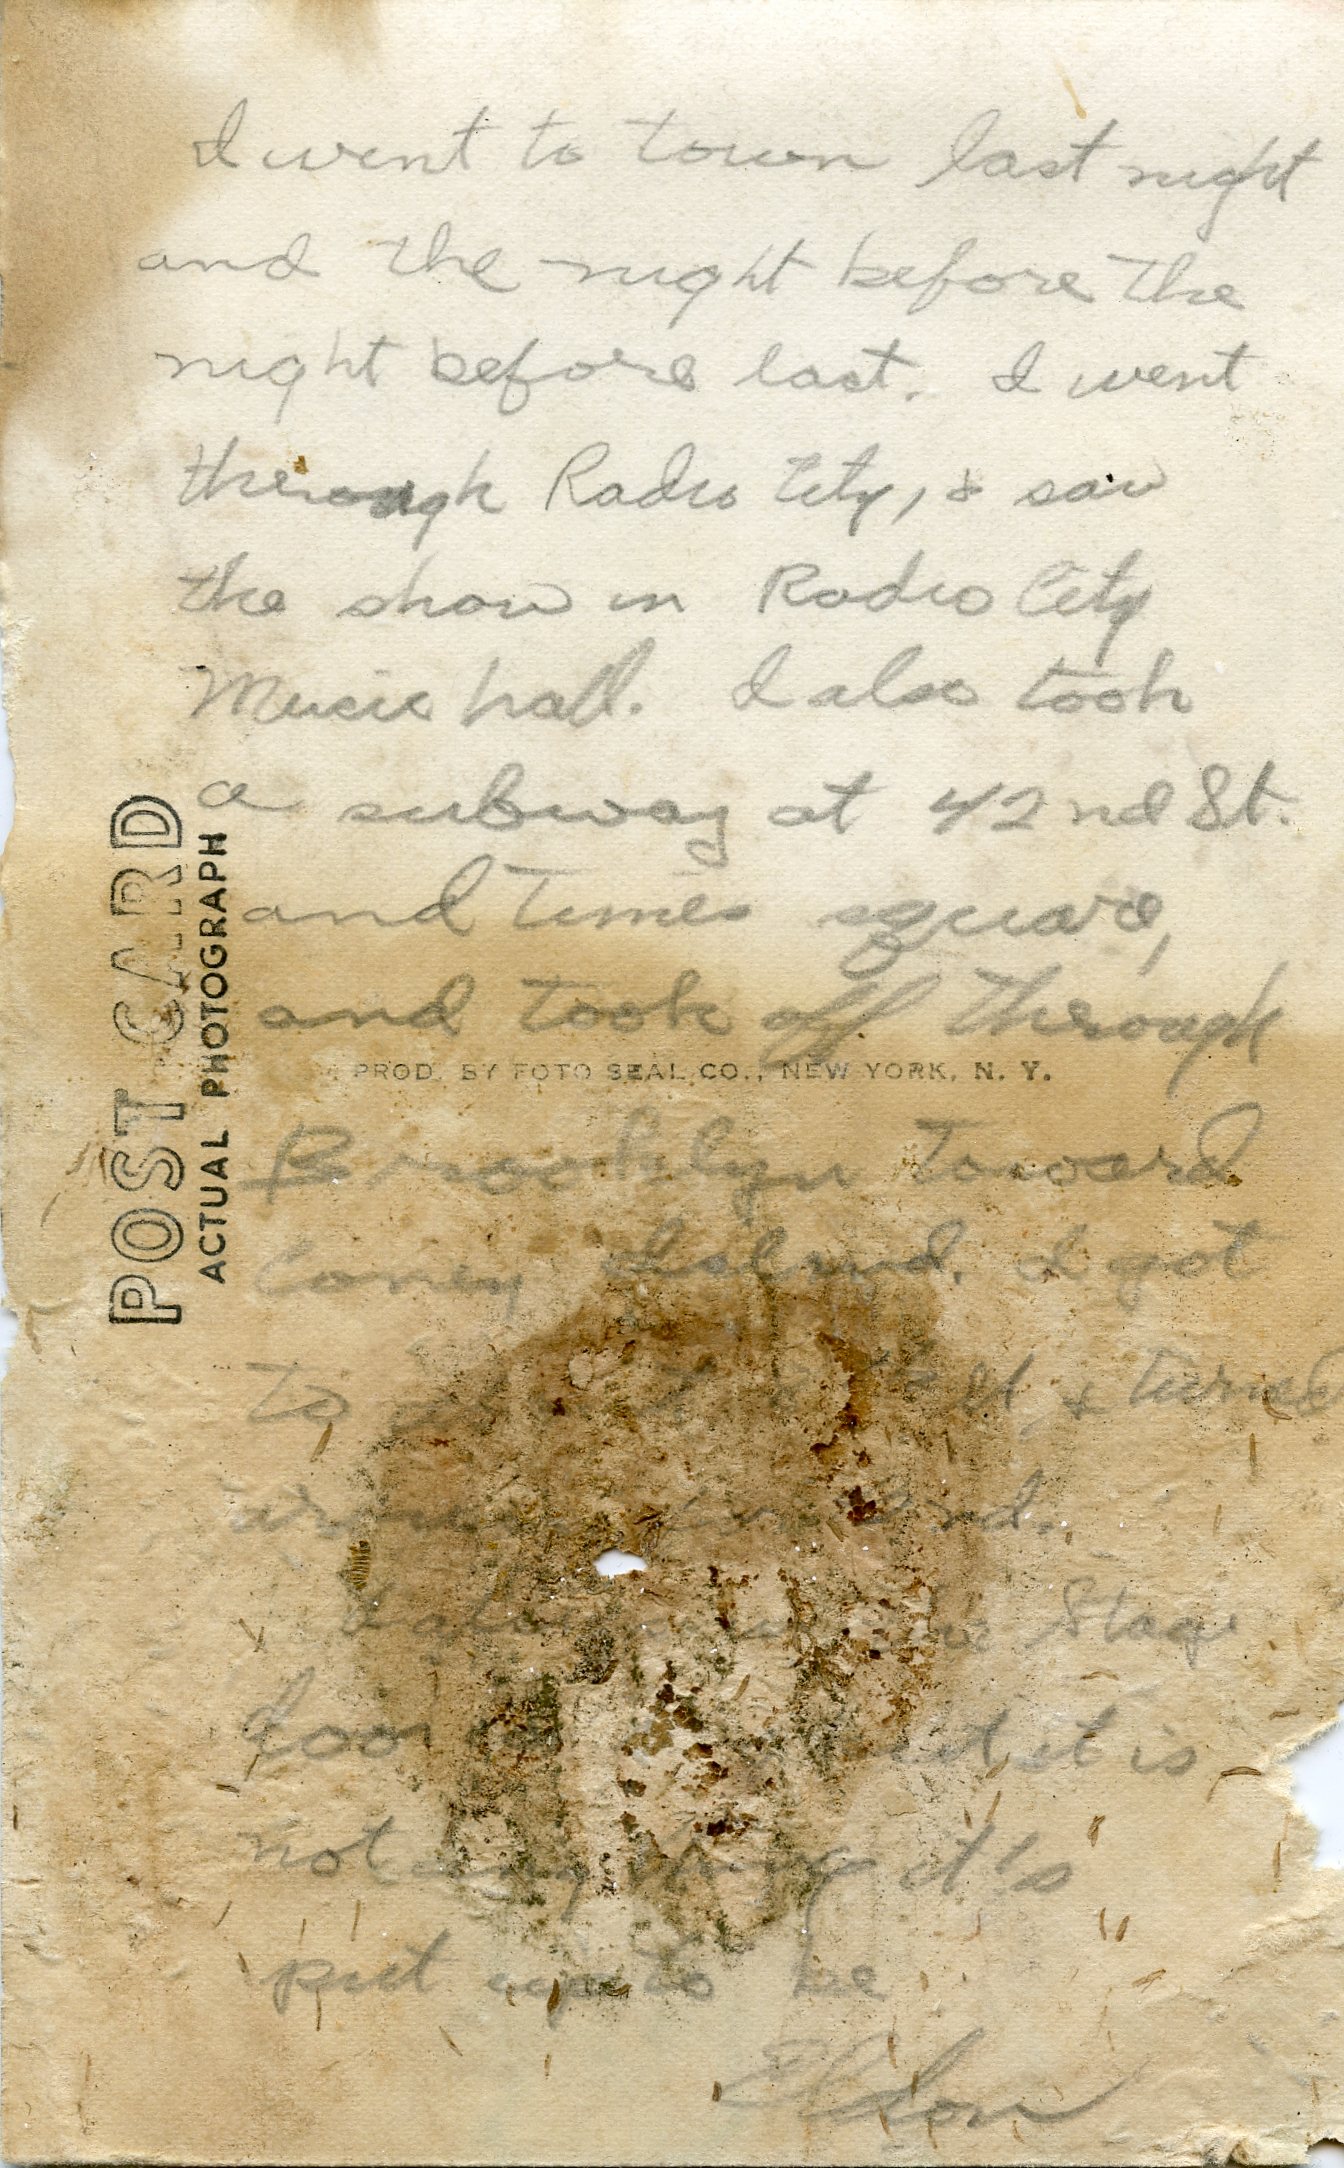 I went to town last night
and the night before the
night before last. I went
through Radio City, & saw
the show in Radio City
Music hall. I also took
a subway at 42nd St.
and Times square,
and took off through
PROD. BY FOTO SEAL CO., NEW YORK, N. Y.
Brooklyn toward
Coney Island. I got
to & turned
around and.
I also the Stage
door but it is
not anything it's
put up to be
Eldon
POST CARD
ACTUAL PHOTOGRAPH